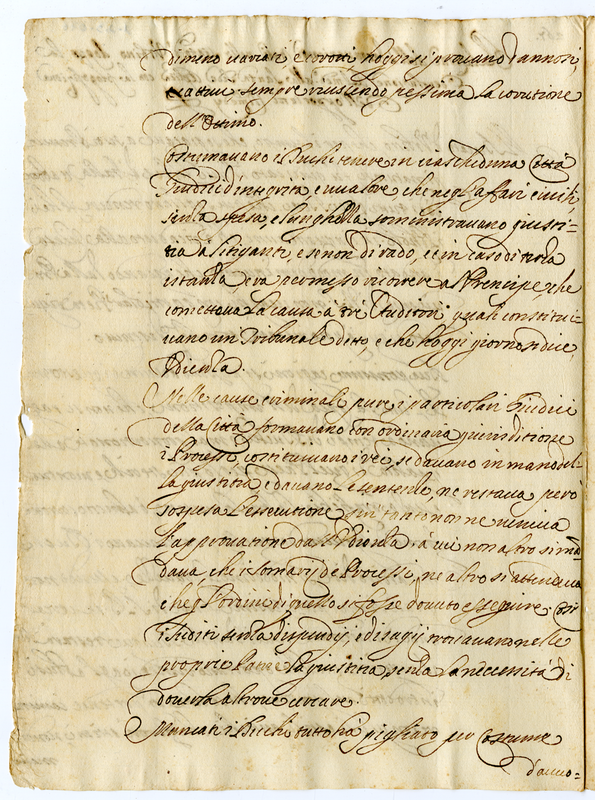 di meno variati e corotti hoggi si provano dannosi,
e attive sempre riuscendo pessima la corutione
dell'Ottimo.
Costumavano i Duchi tenere in ciascheduna Città
Giudici d'integrità, e valore che negl'affari civili,
senza spesa, e lunghezza somministravano giusti-
tia à litiganti, e se non di rado, et in caso di terza
istanza era permesso ricorrere al Prencipe, che
cometteva la causa à trè Auditori quali constitui-
vano un Tribunale detto, e che hoggi giorno si dice
Udienza.
Nelle cause criminali pure i particolari Giudici
della Città formavano con ordinaria giurisditione
i Processi, costituivano i rei, se davano in mano del-
la giustitia, e davano le sentenze, ne restava però
sospesa l'essecutione sin tanto non ne veniva
l'approvatione dall'Udienza, à cui non altro si man-
dava, che i somarij de Processi, ne altro si attendeva
che gl'ordini di quello si fosse dovuto esseguire; così
i sudditi senza dispendij, e disagij trovavano nelle
proprie Patrie la giustitia senza la necessità di
doverla altrove cercare.
Mancati i Duchi tutto hà pigliato per costume